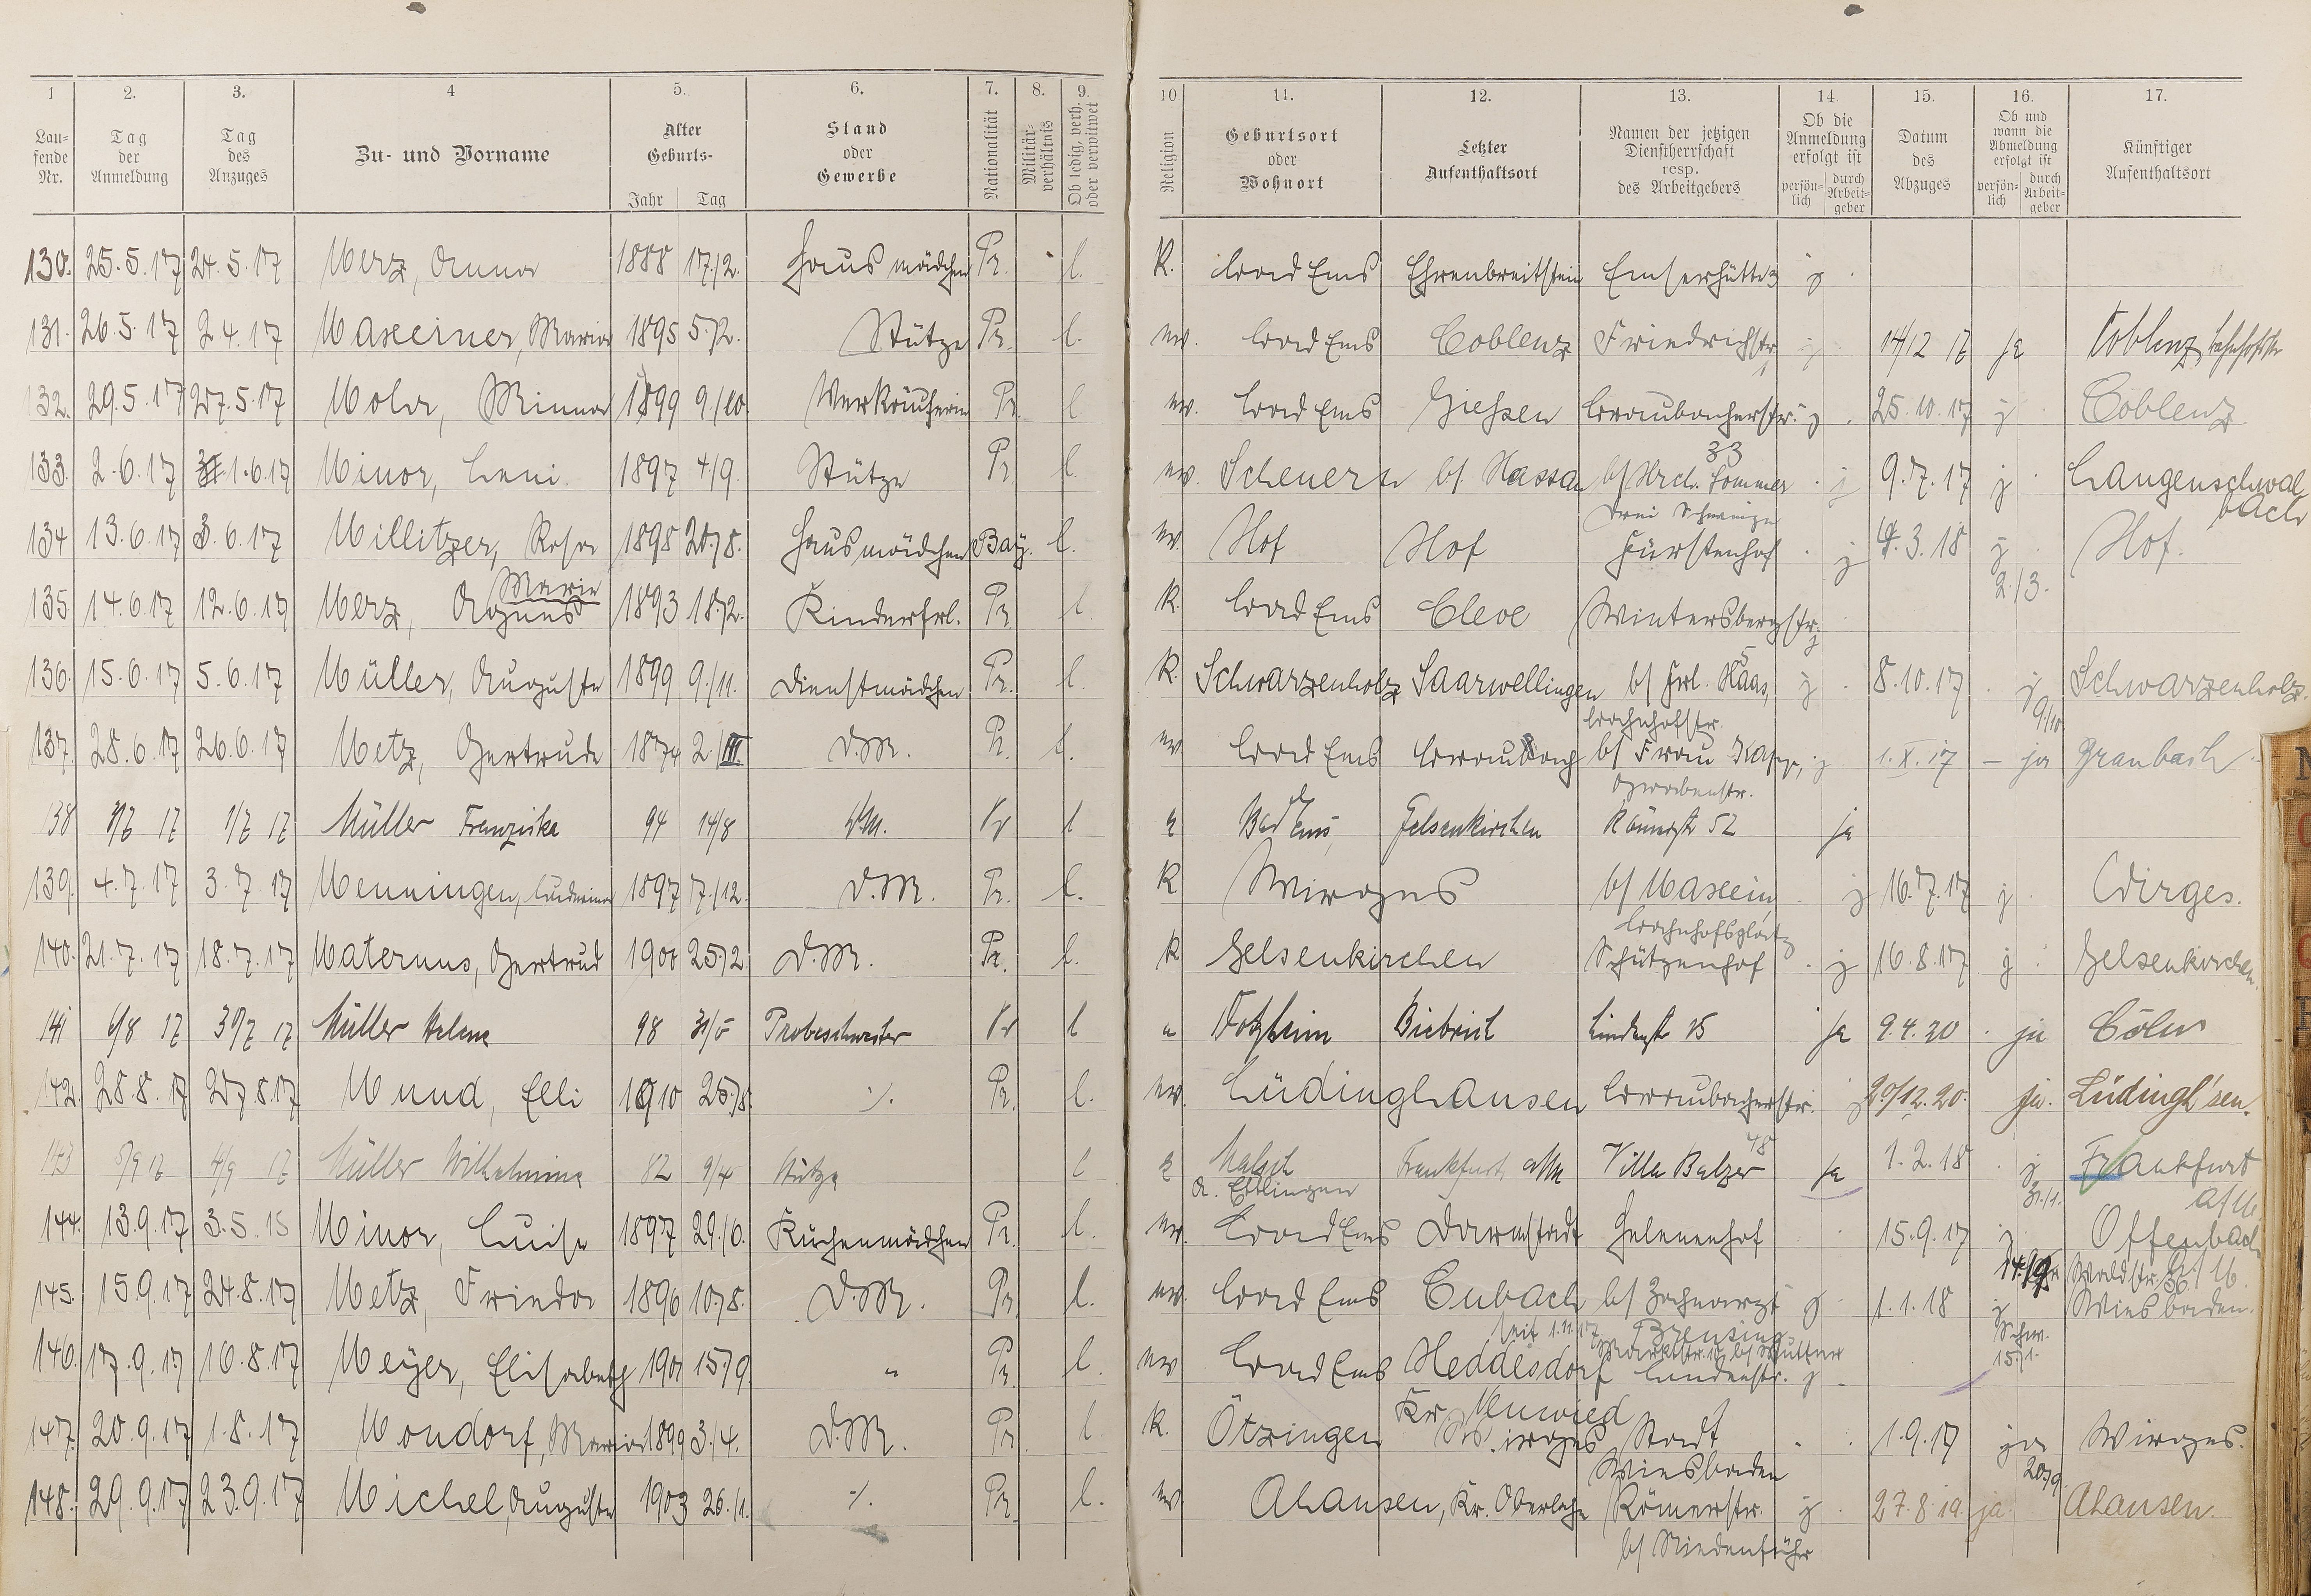 1 2. 3. 4 5. 6. 7. 8. 9. 10 11. 12. 13. 14. 15. 16. 17.
Lau-fende Nr. Tag der Anmeldung Tag des Anzuges Zu- und Vorname Alter Geburts- Jahr Tag Stand oder Gewerbe Nationalität Militär-verhältnis Ob ledig, verh. oder verwitwet Religion Geburtsort oder Wohnort Letzter Aufenthaltsort Namen der jetzigen Dienstherrschaft resp. des Arbeitgebers Ob die Anmeldung erfolgt ist persön-lich durch Arbeit-geber Datum des Abzuges Ob und wann die Abmeldung erfolgt ist persön-lich durch Arbeit-geber Künftiger Aufenthaltsort
130. 25.5.17 24.5.17 Merz, Anna 1888 17./2. Hausmädchen Pr. l. K. Bad Ems Ehrenbreitstein Emserhütte 3 j
131. 26.5.17 2.4.17 Maxeiner, Maria 1895 5./2. Stütze Pr. l. ev. Bad Ems Coblenz Friedrichstr. j 14/12 17 ja Koblenz, Bahnhofstr
132. 29.5.17 27.5.17 Molr, Minna 1899 9./10 Verkäuferin Pr. l ev. Bad Ems Giessen Braubacherstr. j 25.10.17 j Coblenz
33
133. 2.6.17 1.6.17 Minor, Leni. 1897 4/9. Stütze Pr. l. ev. Scheuern b/ Nassau b/ Sommer j 9.7.17 j Langenschwalbach
134 13.6.17 3.6.17 Millitzer, Rosa 1898 20./8. Hausmädchen Bay. l. ev. Hof Hof Fürstenhof j 4.3.18 j 2./3. Hof.
Marie
135 14.6.17 12.6.17 Merz, Agnes 1893 18./2. Kinderfrl. Pr. l K. Bad Ems Cleve Wintersbergstr. j
5
136. 15.6.17 5.6.17 Müller, Auguste 1899 9./11. Dienstmädchen Pr. l. K. Schwarzenholz Saarwellingen b/ Frl. Haas, Bahnhofstr. j 8.10.17 j 9/10. Schwarzenholz.
137. 28.6.17 26.6.17 Metz, Gertrude 1874 2./III. D.M. Pr. l. ev Bad Ems Braubach b/ Frau Kasp, Grabenstr. j 1.X.17 – ja Braubach
138 3/7 17 1/7 17 Müller Franziska 94 14/8 D.M. Pr l k Bad Ems, Gelsenkirchen Römerstr 52 ja
139. 4.7.17 3.7.17 Menningen, 1897 7./12. D.M. Pr. l. K Wirges b/ Maxein, Bahnhofsplatz j 16.7.17 j Wirges.
140. 21.7.17 18.7.17 Maternus, Gertrud 1900 25./2 D.M. Pr. l. K Gelsenkirchen Schützenhof j 16.8.17 j Gelsenkirchen.
141 6/8 17 30/7 17 Müller Helene 98 31/5 Probeschwester Pr l Dotzheim Biebrich Lindenstr 15 ja 9.4.20 ja Cöln
142. 28.8.17 27.8.17 Mund, Elli 1910 25./8. ./. Pr. l. ev. Lüdinghausen Braubacherstr. j 20/12.20. ja. Lüdingh'sen.
48
143 5/9 17 4/9 17 Müller Wilhelmine 82 9/4 Stütze l k Malsch a. Ettlingen Frankfurt a/M Villa Balzer ja 1.2.18 j 31./1. Frankfurt a/M
144. 13.9.17 3.5.15 Minor, Luise 1897 29./6. Küchenmädchen Pr. l. ev. Bad Ems Darmstadt Helenenhof 15.9.17 j 14./9. Offenbach a/M. Waldstr. 36.
145. 15.9.17 24.8.17 Metz, Frieda 1896 10./8. D.M. Pr l. ev. Bad Ems Cubach b/ Zahnarzt Brensing j 1.1.18 j Wiesbaden.
seit 1.11.17 Schw. 15./1.
146. 17.9.17 16.8.17 Meyer, Elisabeth 1901 15./9. " Pr. l. ev Bad Ems Heddesdorf Kr. Neuwied Lindenstr. j
147. 20.9.17 1.8.17 Mondorf, Maria 1899 3./4. D.M. Pr. l. K. Ötzingen Wirges Stadt Wiesbaden 1.9.17 ja 20./9. Wirges.
148. 29.9.17 23.9.17 Michel, Auguste 1903 26./1. ./. Pr. l. ev. Ahausen, Kr. Oberlahn Römerstr. j 27.8.19. ja Ahausen.
b/